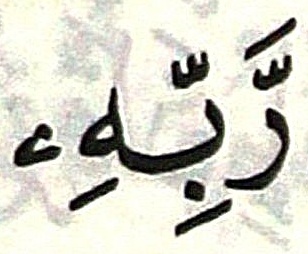 رَّبِّهِۦ